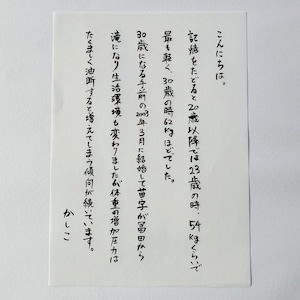 こんにちは。
記憶をたどると20歳以降では23歳の時、54kgくらいで
最も軽く、30歳の時62kgほどでした。
30歳になる手前の2003年3月に結婚して苗字が冨田から
滝になり生活環境も変わりましたが体重の増加圧力は
たくましく油断すると増えてしまう傾向が続いています。
かしこ